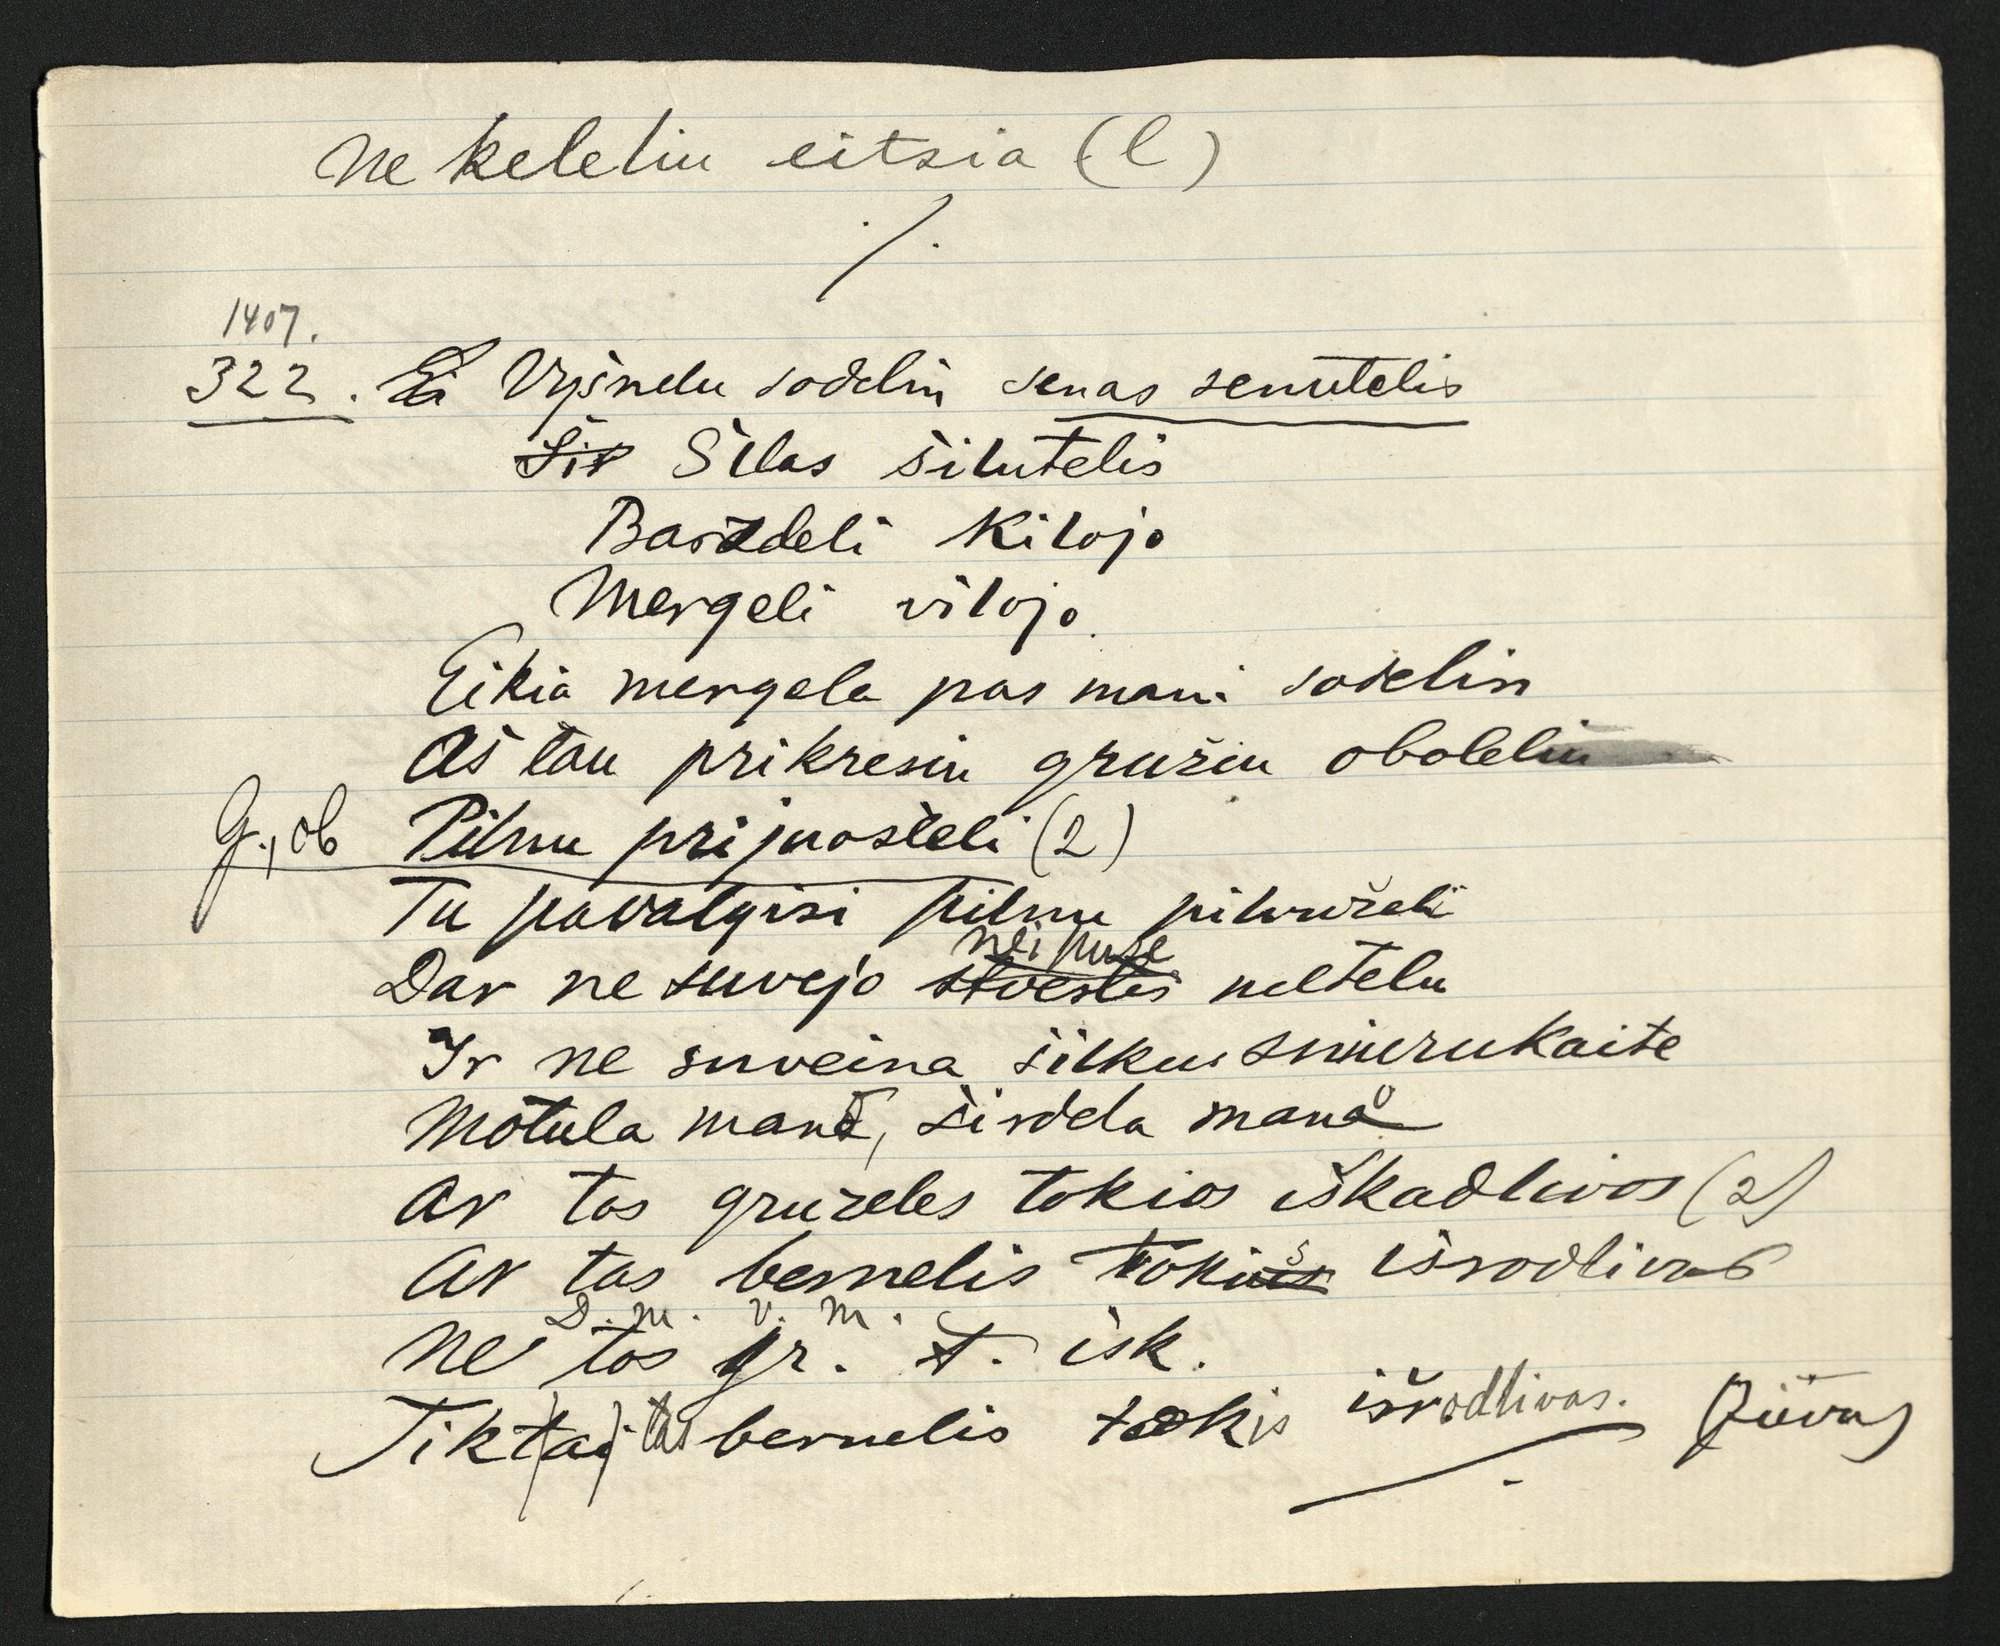 ne keleliu eitsia (l)
./.
1407.
322. Ei Vyšnelu sodelin senas senutelis
Šir Šilas šilutelis
Barzdeli kilojo
Mergeli vilojo.
Eikia mergela pas mani sodelin
Aš tau prikresiu grušiu oboleliu
G., ob Pilnu prijuosteli (2)
Tu pavalgisi pilnu pilvuželi
nei puse
Dar ne suvejo stvertis neltelu
Ir ne suveina šilku sniurukaite
Motula mana, širdela mana
Ar tos gruzeles tokios iškadlivos (2)
Ar tas bernelis tokis išrodlivas
D. m. v. m.
Ne tos gr. t. isk.
Tik(tai) tas bernelis tokis išrodlivas.